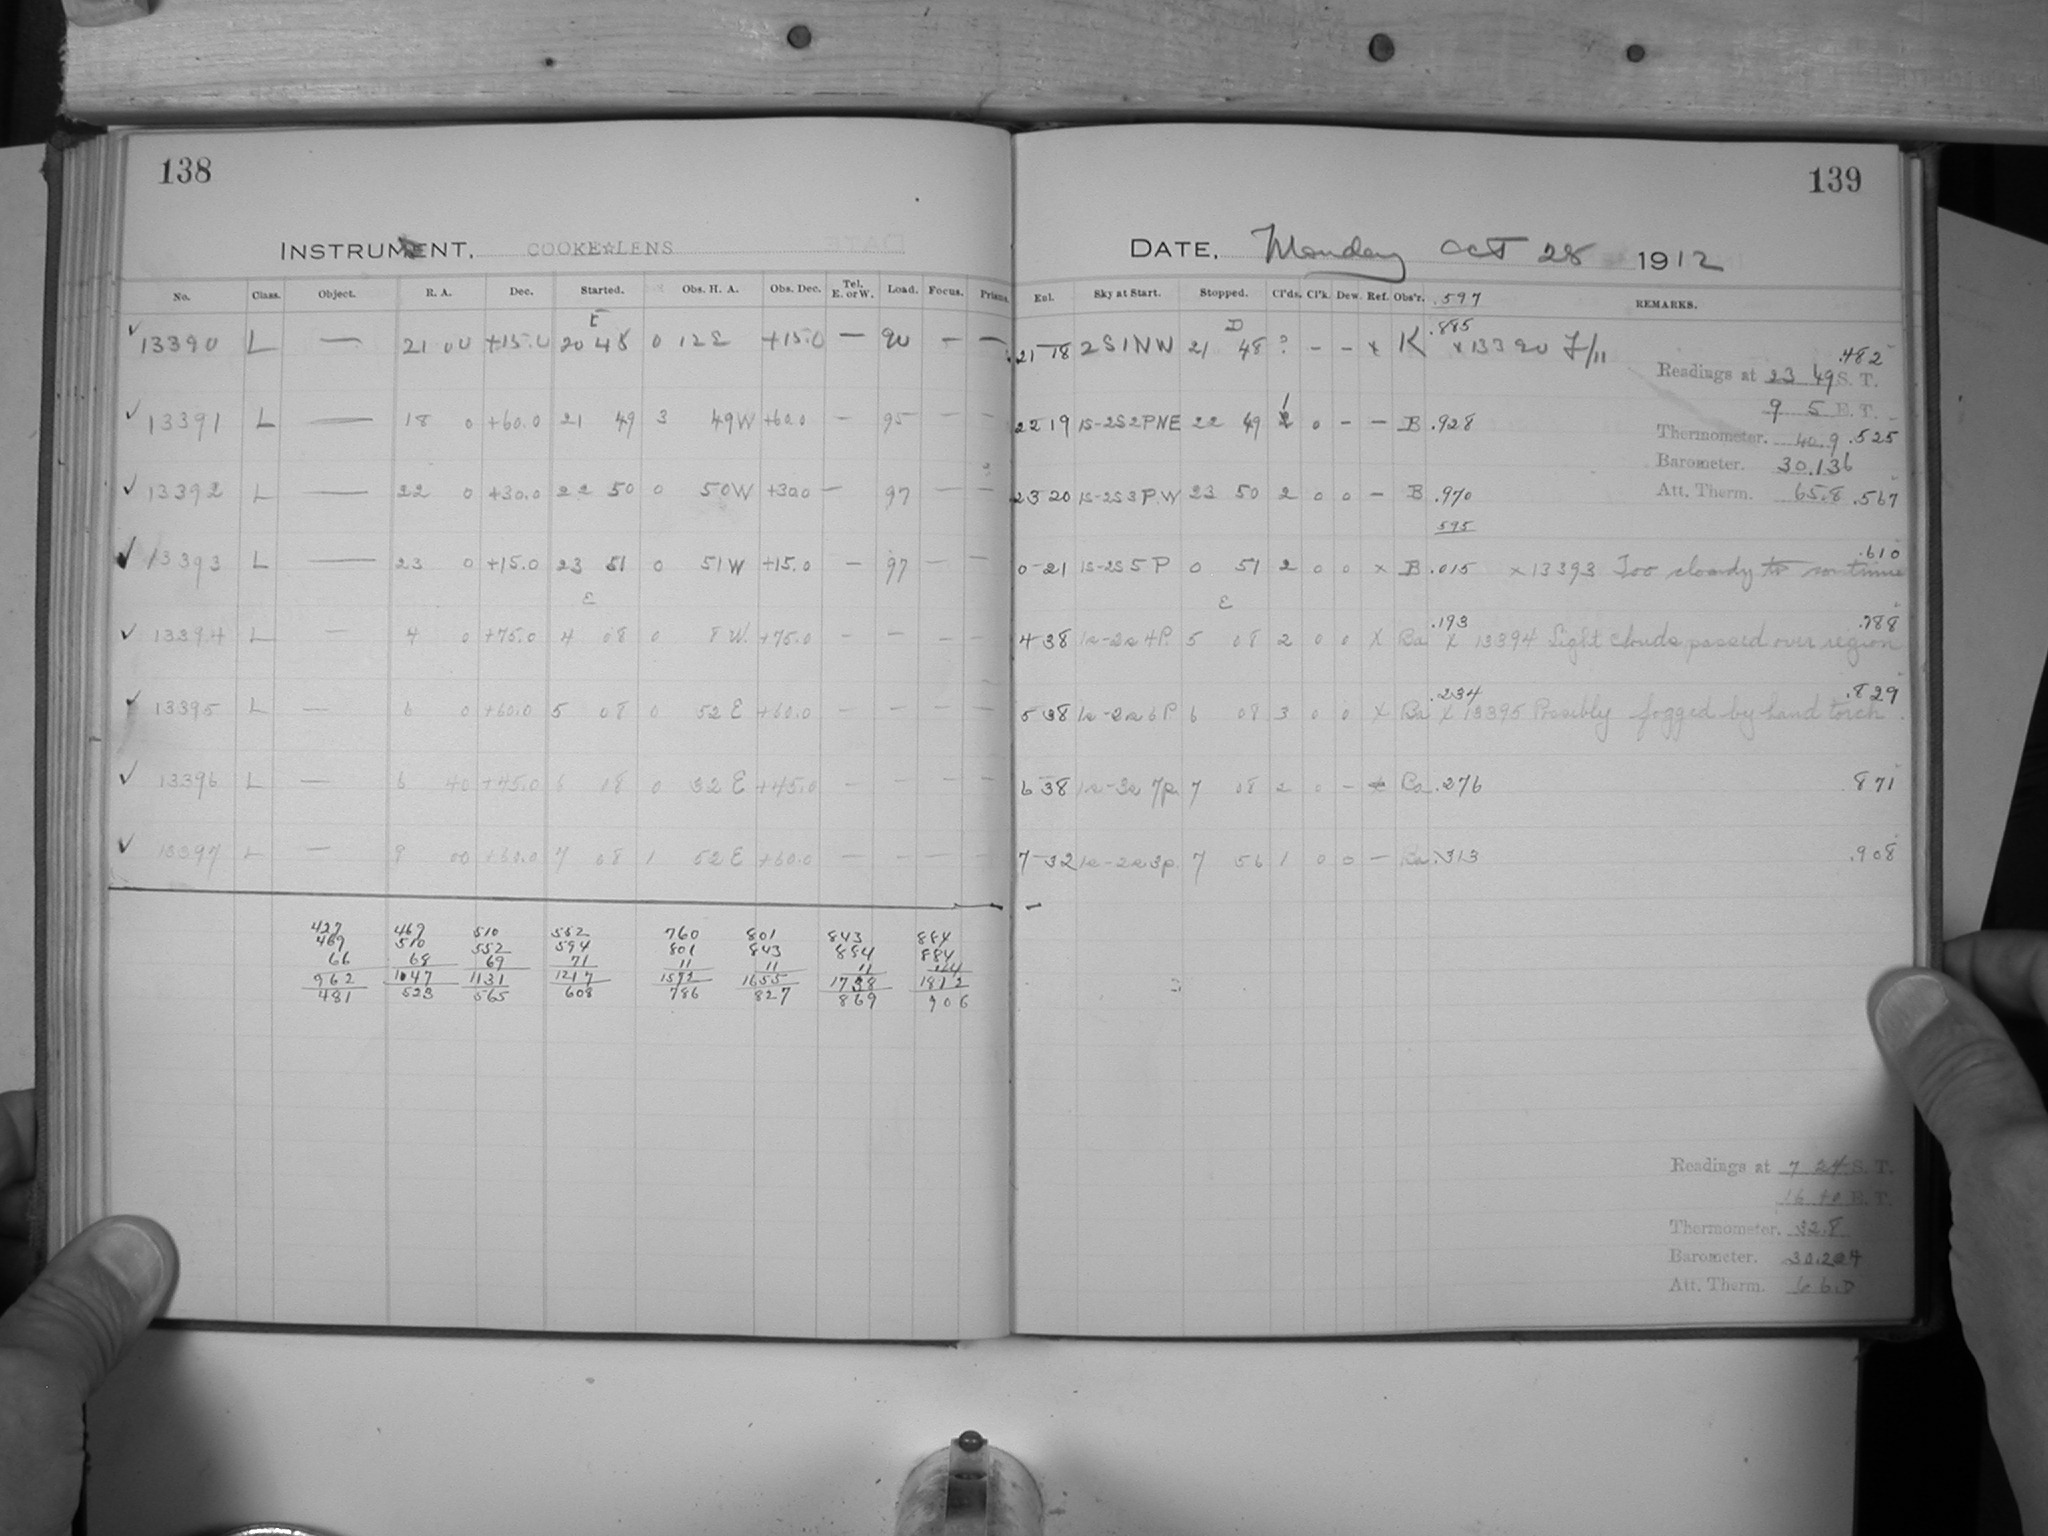 138
INSTRUMENT. COOKE☆LENS
No. Class. Object. R. A. Dec. Started. Obs. H. A. Obs. Dec. Tel. E. or W. Load. Focus. Prism.
E
13390 L — 21 00 +15.0 20 48 0 12 E +15.0 — 90 — —
13391 L — 18 0 +60.0 21 49 3 49 W +60.0 — 95 — —
13392 L — 22 0 +30.0 22 50 0 50 W +30.0 — 97 — —
13393 L — 23 0 +15.0 23 51 0 51 W +15.0 — 97 — —
E
13394 L — 4 0 +75.0 4 08 0 8 W. +75.0 — — — —
13395 L — 6 0 +60.0 5 08 0 52 E +60.0 — — — —
13396 L — 6 40 +45.0 6 08 0 32 E +45.0 — — — —
13397 L — 9 00 +60.0 7 08 1 52 E +60.0 — — — —
427 469 510 552 760 801 843 884
469 510 552 594 801 843 884 884
66 68 69 71 11 11 11
962 1047 1131 1217 1572 1655 1738 1812
481 523 565 608 786 827 869 906
139
DATE. Monday Oct 28 1912
Exl. Sky at Start. Stopped. Cl'ds. Cl'k. Dew. Ref. Obs'r. .597 REMARKS.
D .885
21 18 2S1NW 21 48 ? - - x K x 13390 f/11 .482
Readings at 23 49 S. T.
9 5 E. T.
1
22 19 1S-2S2PNE 22 49 2 0 - - B .928
Thermometer. 40.9 .525
Barometer. 30.136
23 20 1S-2S3P.W 23 50 2 0 0 - B .970
Att. Therm. 65.8 .567
595
0 21 1S-2S5P 0 51 2 0 0 x B .015 x 13393 Too cloudy to continue .610
E
4 38 1s-2s4P. 5 08 2 0 0 x Ba .193 x 13394 Light clouds passed over region .788
5 38 1s-2s6P 6 08 3 0 0 x Ba .234 x 13395 Possibly fogged by hand torch .829
6 38 1s-3s7p. 7 08 2 0 - Ba .276 871
7 32 1s-2s3p. 7 56 1 0 0 — Ba .313 .908
Readings at 7 24 S. T.
16 40 E. T.
Thermometer. 32.8
Barometer. 30.204
Att. Therm. 66.0